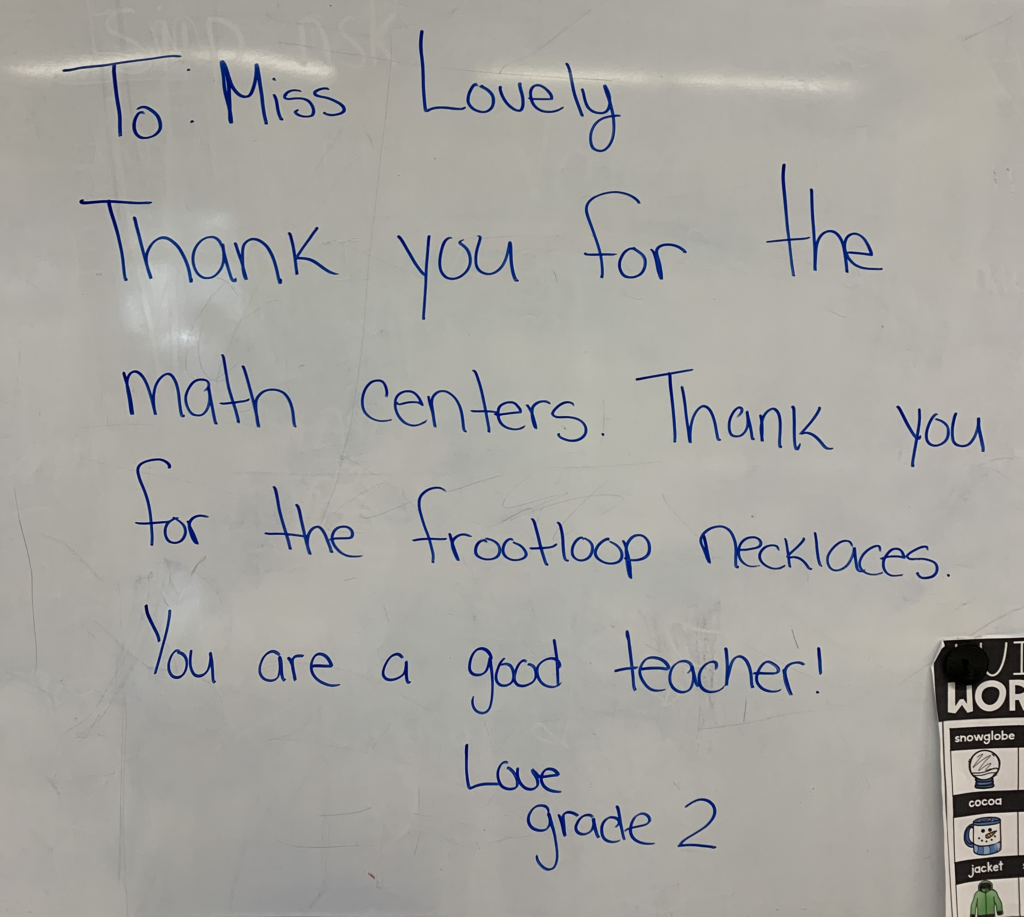 To: Miss Lovely
Thank you for the
math centers. Thank you
for the frootloop necklaces.
You are a good teacher!
Love
grade 2
snowglobe
cocoa
jacket